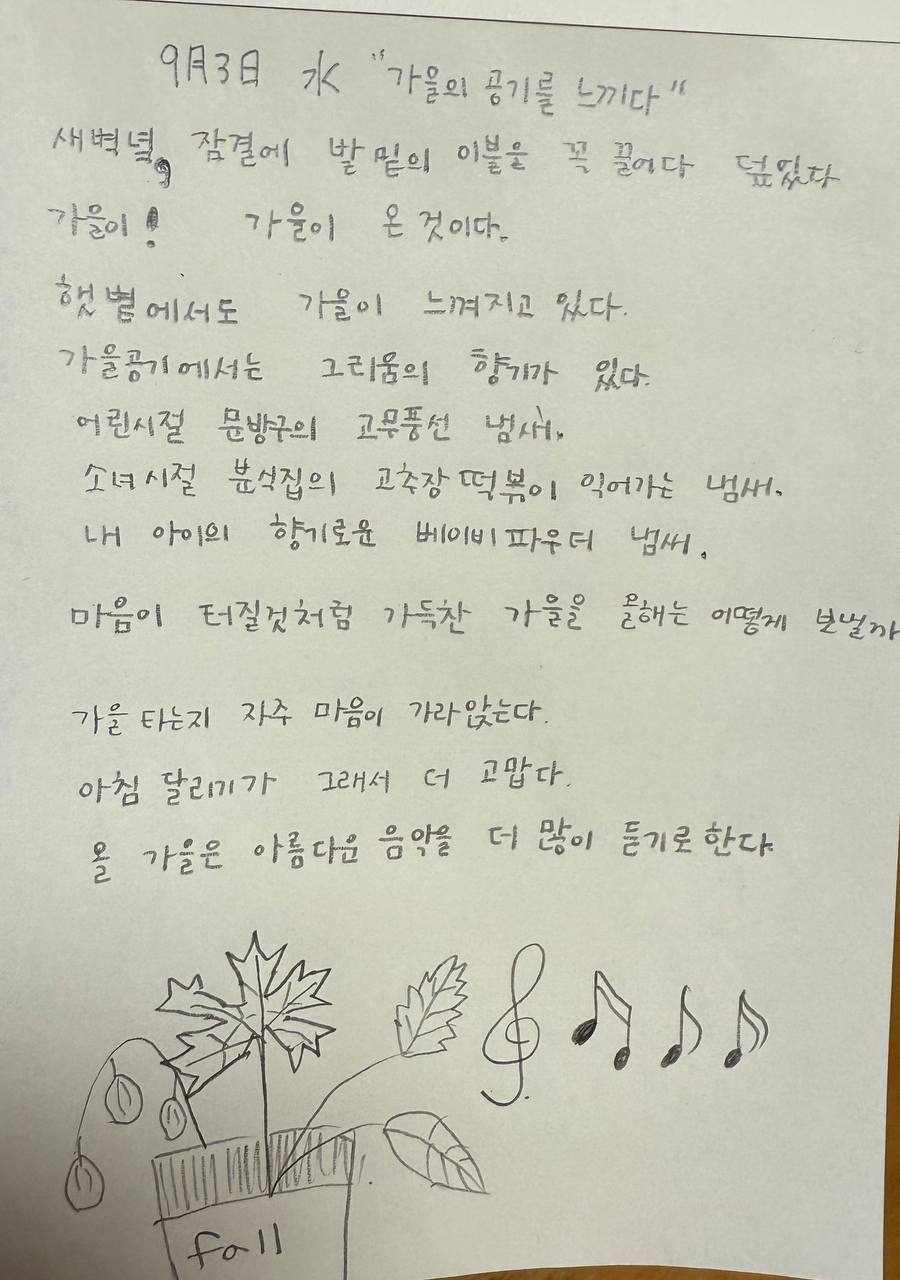 9月3日 水 "가을의 공기를 느끼다"
새벽녘, 잠결에 발 밑의 이불을 꼭 끌어다 덮었다
가을이! 가을이 온 것이다.
햇볕에서도 가을이 느껴지고 있다.
가을공기에서는 그리움의 향기가 있다.
어린시절 문방구의 고무풍선 냄새.
소녀시절 분식집의 고추장 떡볶이 익어가는 냄새.
내 아이의 향기로운 베이비파우더 냄새.
마음이 터질것처럼 가득찬 가을을 올해는 어떻게 보낼까
가을 타는지 자주 마음이 가라앉는다.
아침 달리기가 그래서 더 고맙다.
올 가을은 아름다운 음악을 더 많이 듣기로 한다.
fall